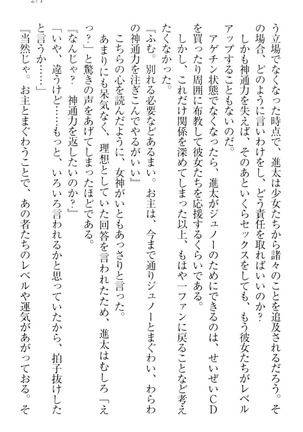 271
う立場でなくなった時点で、進太は少女たちから諸々のことを追及されるだろう。そ
の場合、どのように言いわけをし、どう責任を取ればいいのか？
しかも神通力を失えば、そのあといくらセックスをしても、もう彼女たちがレベル
アップすることもないのだ。
アゲチン状態でなくなったら、進太がジュノーのためにできるのは、せいぜいＣＤ
を買ったり周囲に布教して彼女たちを応援するくらいである。
しかし、これだけ関係を深めてしまった以上、もはや一ファンに戻ることなど考え
たくなかった。
「ふむ。別れる必要などあるまい。お主は、今まで通りジュノーとまぐわい、わらわ
の神通力を注ぎこんでやるがいい」
こちらの心を読んだように、女神がいともあっさりと言った。
あまりにも呆気なく、理想としていた回答を言われたため、進太はむしろ「え
っ？」と驚きの声をあげてしまったほどである。
「なんじゃ？　神通力を返したいのか？」
「いや、違うけど……もっと、いろいろ言われるかと思っていたから、拍子抜けした
と言うか……」
「当然じゃ。お主とまぐわうことで、あの者たちのレベルや運気があがっておる。そ